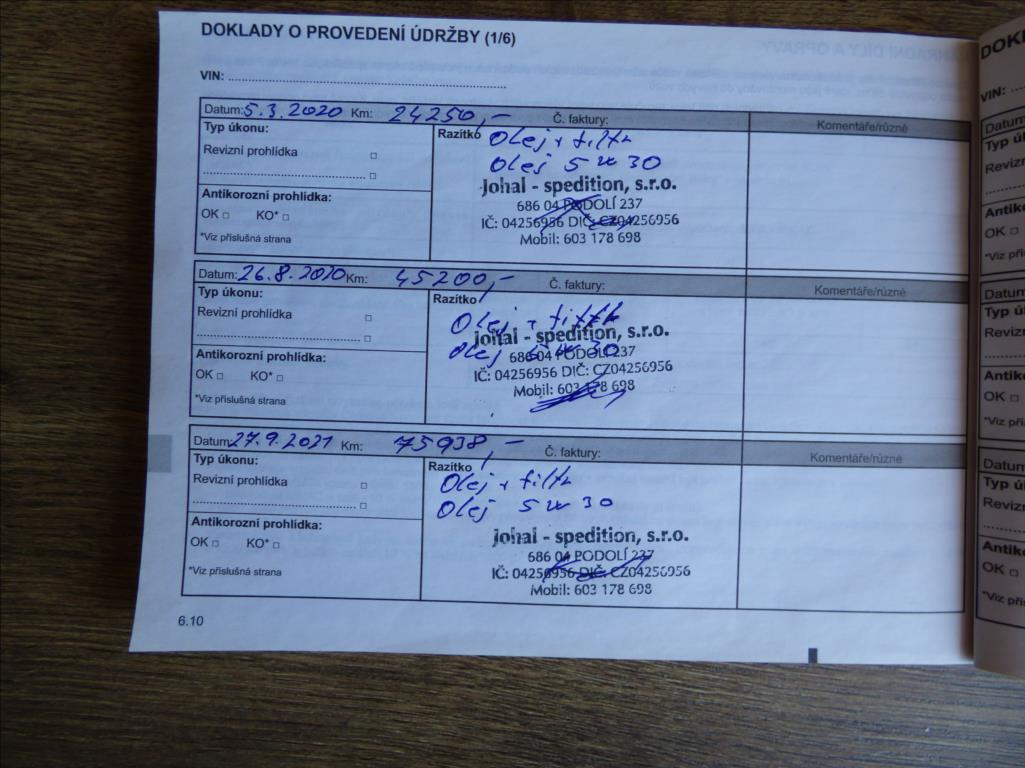 DOKLADY O PROVEDENÍ ÚDRŽBY (1/6)
VIN:
Datum: 5.3.2020 Km: 24250,- Č. faktury:
Komentáře/různé
Typ úkonu:
Revizní prohlídka
Antikorozní prohlídka:
OK KO*
*Viz příslušná strana
Razítko
Olej + filtr
Olej 5w30
Johal - spedition, s.r.o.
686 04 PODOLÍ 237
IČ: 04256956 DIČ: CZ04256956
Mobil: 603 178 698
Datum: 26.8.2020 Km: 45200,- Č. faktury:
Komentáře/různé
Typ úkonu:
Revizní prohlídka
Antikorozní prohlídka:
OK KO*
*Viz příslušná strana
Razítko
Olej + filtr
Olej 5w30
Johal - spedition, s.r.o.
686 04 PODOLÍ 237
IČ: 04256956 DIČ: CZ04256956
Mobil: 603 178 698
Datum: 27.9.2021 Km: 75938,- Č. faktury:
Komentáře/různé
Typ úkonu:
Revizní prohlídka
Antikorozní prohlídka:
OK KO*
*Viz příslušná strana
Razítko
Olej + filtr
Olej 5w30
Johal - spedition, s.r.o.
686 04 PODOLÍ 237
IČ: 04256956 DIČ: CZ04256956
Mobil: 603 178 698
6.10
VIN:
Datum
Typ ú
Revizn
Antiko
OK
*Viz přís
Datum
Typ úk
Revizn
Antiko
OK
*Viz pří
Datum
Typ ú
Revizn
Antiko
OK
*Viz pří